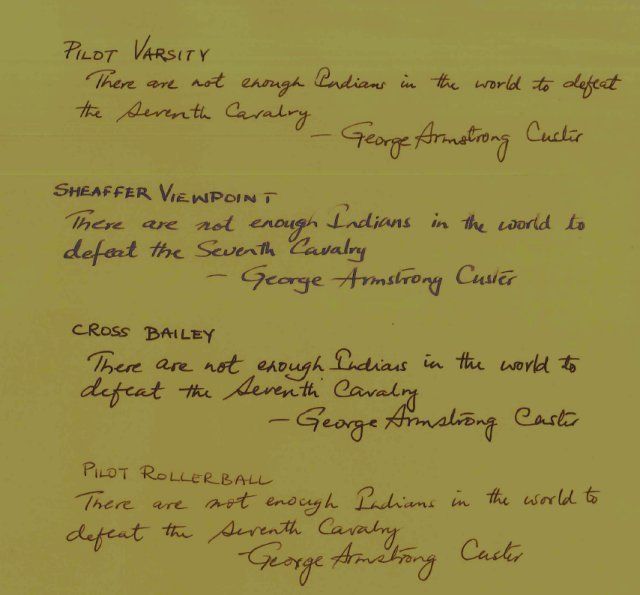 PILOT VARSITY
There are not enough Indians in the world to defeat
the Seventh Cavalry
— George Armstrong Custer
SHEAFFER VIEWPOINT
There are not enough Indians in the world to
defeat the Seventh Cavalry
— George Armstrong Custer
CROSS BAILEY
There are not enough Indians in the world to
defeat the Seventh Cavalry
— George Armstrong Custer
PILOT ROLLERBALL
There are not enough Indians in the world to
defeat the Seventh Cavalry
— George Armstrong Custer